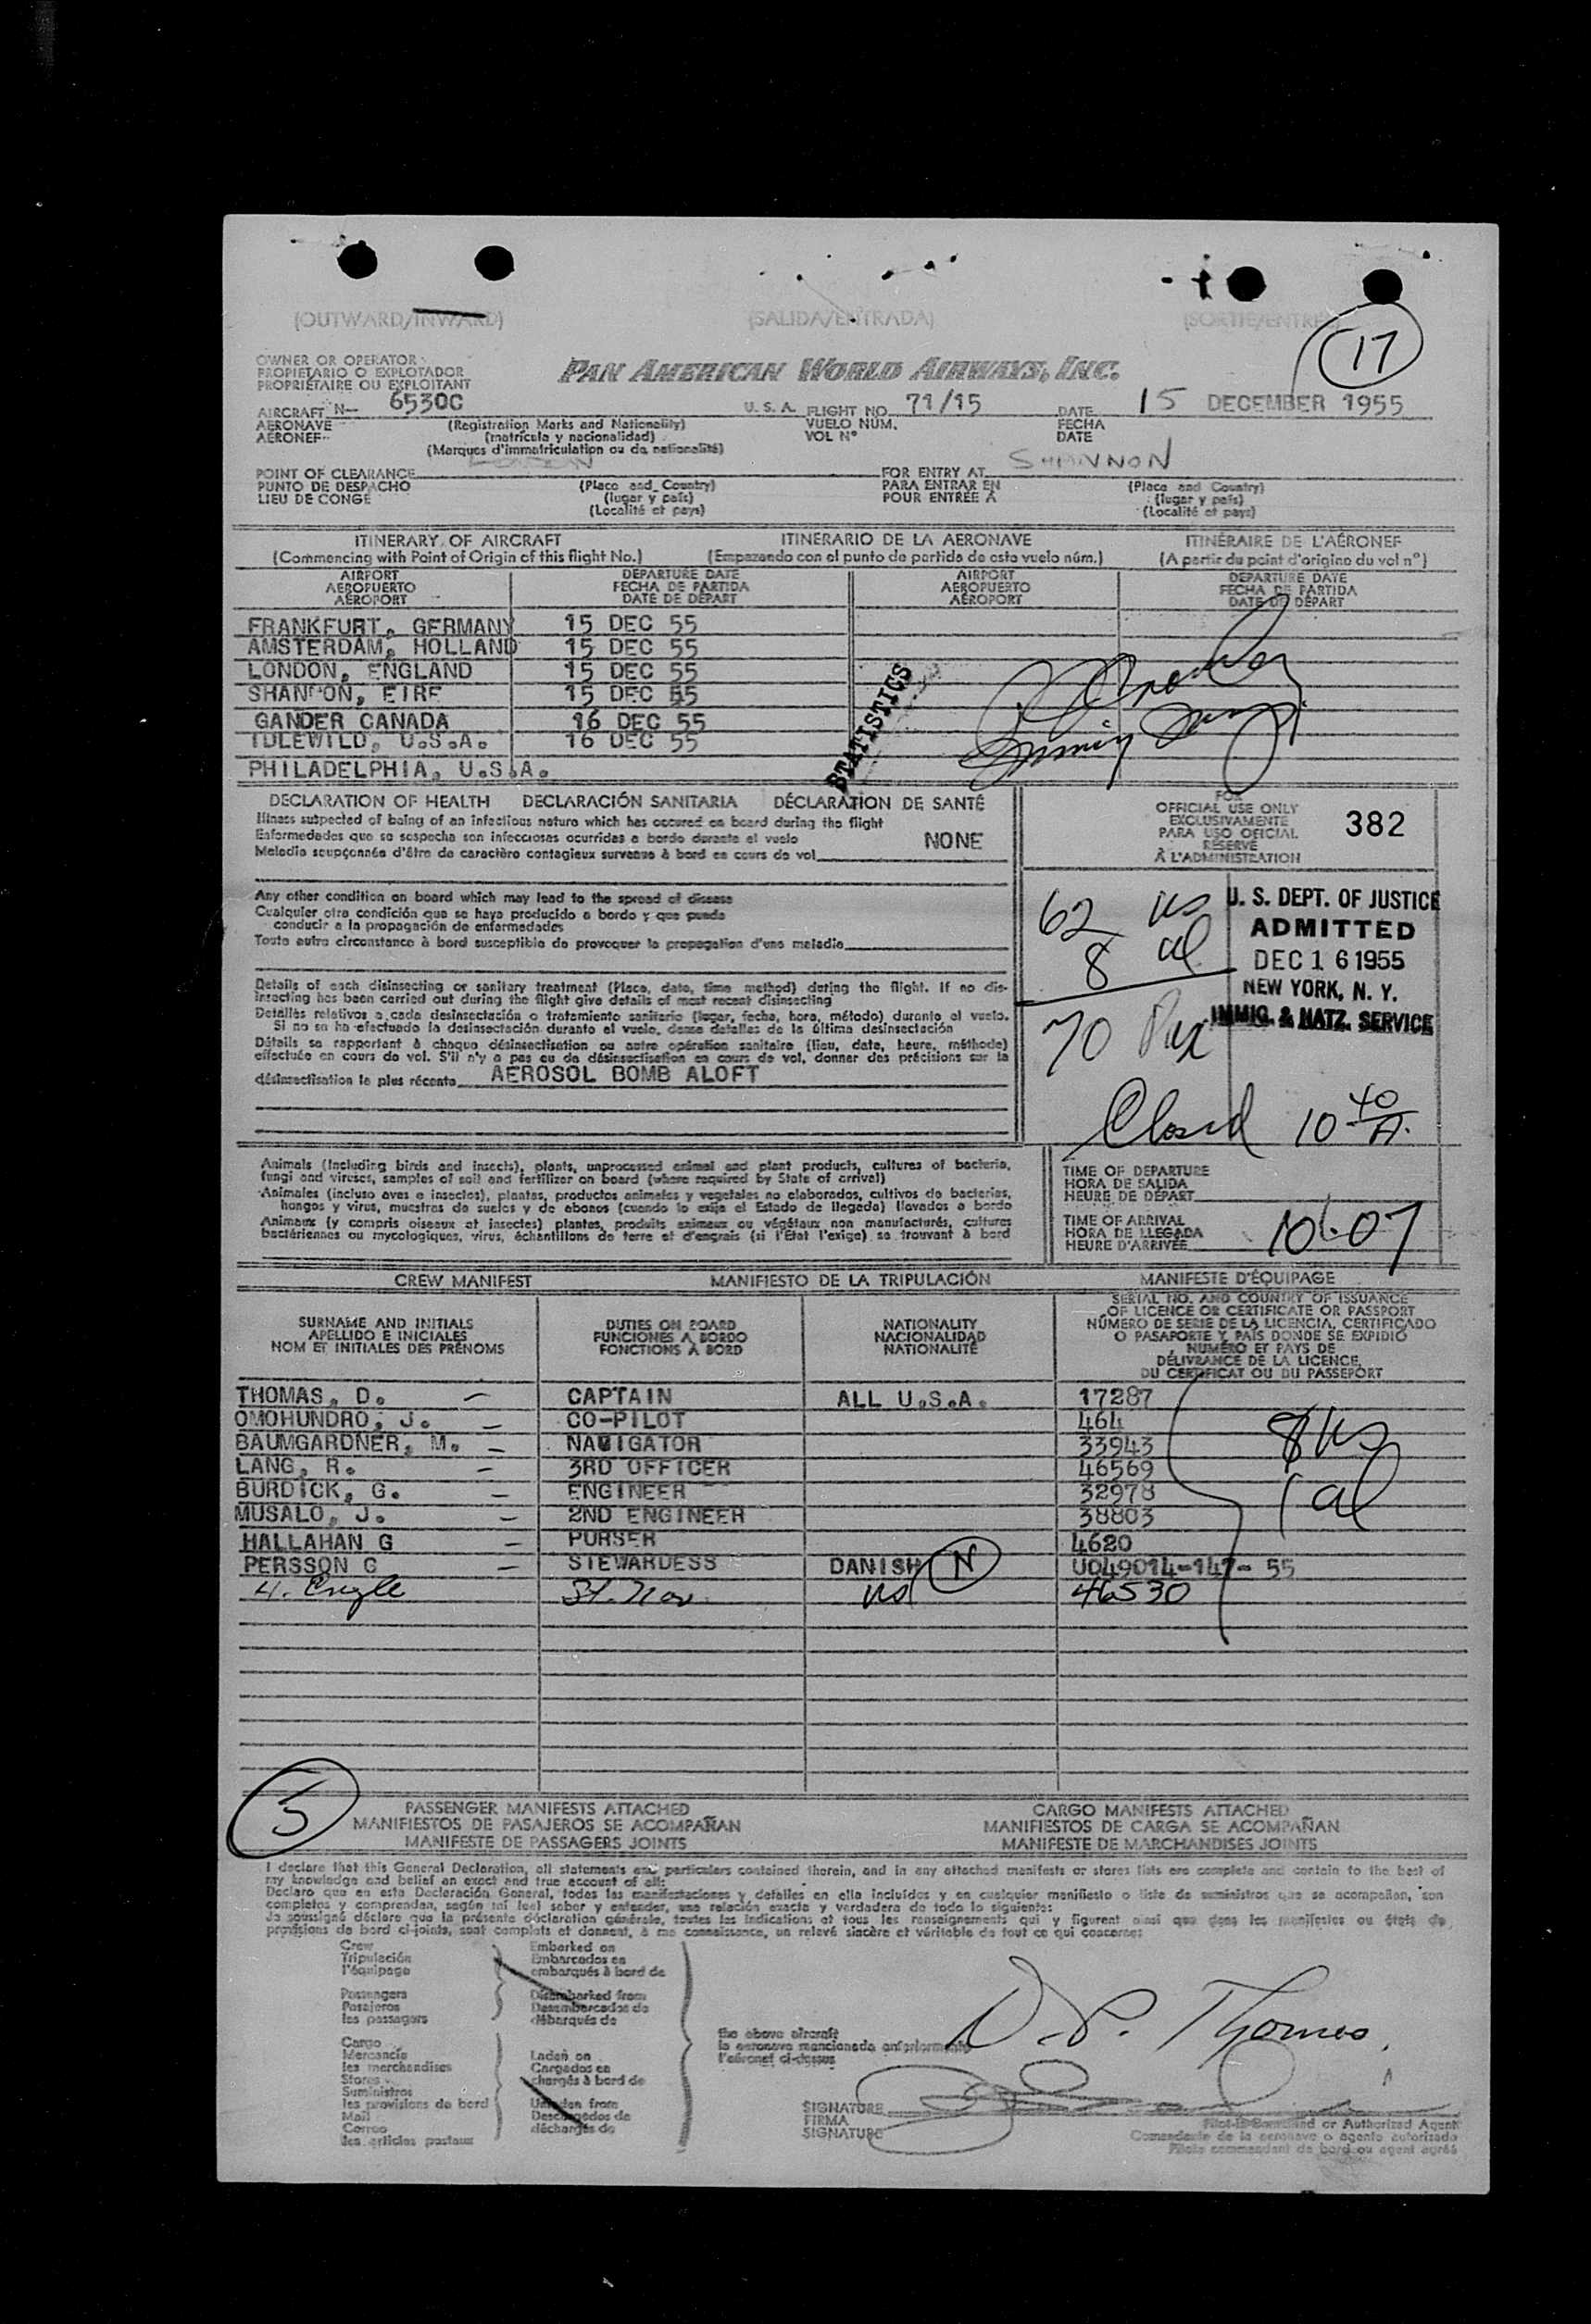 (OUTWARD/INWARD) (SALIDA/ENTRADA) (SORTIE/ENTRÉE)
17
OWNER OR OPERATOR
PROPIETARIO O EXPLOTADOR
PROPRIÉTAIRE OU EXPLOITANT
PAN AMERICAN WORLD AIRWAYS, INC.
AIRCRAFT N— 6530C U. S. A. FLIGHT NO. 71/15 DATE 15 DECEMBER 1955
AERONAVE (Registration Marks and Nationality) VUELO NÚM. FECHA
AÉRONEF (matrícula y nacionalidad) VOL Nº DATE
(Marques d'immatriculation ou de nationalité)
LONDON SHANNON
POINT OF CLEARANCE FOR ENTRY AT
PUNTO DE DESPACHO (Place and Country) PARA ENTRAR EN (Place and Country)
LIEU DE CONGÉ (lugar y país) POUR ENTRÉE À (lugar y país)
(Localité et pays) (Localité et pays)
ITINERARY OF AIRCRAFT ITINERARIO DE LA AERONAVE ITINÉRAIRE DE L'AÉRONEF
(Commencing with Point of Origin of this flight No.) (Empezando con el punto de partida de este vuelo núm.) (A partir du point d'origine du vol nº)
AIRPORT DEPARTURE DATE AIRPORT DEPARTURE DATE
AEROPUERTO FECHA DE PARTIDA AEROPUERTO FECHA DE PARTIDA
AÉROPORT DATE DE DÉPART AÉROPORT DATE DE DÉPART
FRANKFURT, GERMANY 15 DEC 55
AMSTERDAM, HOLLAND 15 DEC 55
LONDON, ENGLAND 15 DEC 55
SHANNON, EIRE 15 DEC 55
GANDER CANADA 16 DEC 55
IDLEWILD, U.S.A. 16 DEC 55
PHILADELPHIA, U.S.A.
STATISTICS
DECLARATION OF HEALTH DECLARACIÓN SANITARIA DÉCLARATION DE SANTÉ
Illness suspected of being of an infectious nature which has occured on board during the flight
Enfermedades que se sospecha son infecciosas ocurridas a bordo durante el vuelo NONE
Maladie soupçonnée d'être de caractère contagieux survenue à bord en cours de vol
FOR
OFFICIAL USE ONLY
EXCLUSIVAMENTE
PARA USO OFICIAL
RÉSERVÉ
À L'ADMINISTRATION
382
Any other condition on board which may lead to the spread of disease
Cualquier otra condición que se haya producido a bordo y que pueda
conducir a la propagación de enfermedades
Toute autre circonstance à bord susceptible de provoquer la propagation d'une maladie
62 US
8 al
70 Pax
U. S. DEPT. OF JUSTICE
ADMITTED
DEC 16 1955
NEW YORK, N. Y.
IMMIG. & NATZ. SERVICE
Details of each disinsecting or sanitary treatment (Place, date, time method) during the flight. If no dis-
insecting has been carried out during the flight give details of most recent disinsecting
Detalles relativos a cada desinsectación o tratamiento sanitario (lugar, fecha, hora, método) durante el vuelo.
Si no se ha efectuado la desinsectación durante el vuelo, dense detalles de la última desinsectación
Détails se rapportant à chaque désinsectisation ou autre opération sanitaire (lieu, date, heure, méthode)
effectuée en cours de vol. S'il n'y a pas eu de désinsectisation en cours de vol, donner des précisions sur la
désinsectisation la plus récente AEROSOL BOMB ALOFT
Closed 10 40 A.
Animals (Including birds and insects), plants, unprocessed animal and plant products, cultures of bacteria,
fungi and viruses, samples of soil and fertilizer on board (where required by State of arrival)
Animales (incluso aves e insectos), plantas, productos animales y vegetales no elaborados, cultivos de bacterias,
hongos y virus, muestras de suelos y de abonos (cuando lo exija el Estado de llegada) llevados a bordo
Animaux (y compris oiseaux et insectes) plantes, produits animaux ou végétaux non manufacturés, cultures
bactériennes ou mycologiques, virus, échantillons de terre et d'engrais (si l'État l'exige) se trouvant à bord
TIME OF DEPARTURE
HORA DE SALIDA
HEURE DE DÉPART
TIME OF ARRIVAL
HORA DE LLEGADA
HEURE D'ARRIVÉE
CREW MANIFEST MANIFIESTO DE LA TRIPULACIÓN MANIFESTE D'ÉQUIPAGE
SURNAME AND INITIALS
APELLIDO E INICIALES
NOM ET INITIALES DES PRÉNOMS
DUTIES ON BOARD
FUNCIONES A BORDO
FONCTIONS À BORD
NATIONALITY
NACIONALIDAD
NATIONALITÉ
SERIAL NO. AND COUNTRY OF ISSUANCE
OF LICENCE OR CERTIFICATE OR PASSPORT
NÚMERO DE SERIE DE LA LICENCIA, CERTIFICADO
O PASAPORTE Y PAÍS DONDE SE EXPIDIÓ
NUMÉRO ET PAYS DE
DÉLIVRANCE DE LA LICENCE,
DU CERTIFICAT OU DU PASSEPORT
THOMAS, D. — CAPTAIN ALL U.S.A. 17287
OMOHUNDRO, J. — CO-PILOT 464
BAUMGARDNER, M. — NAVIGATOR 33943
LANG, R. — 3RD OFFICER 46569
BURDICK, G. — ENGINEER 32978
MUSALO, J. — 2ND ENGINEER 38803
HALLAHAN G — PURSER 4620
PERSSON G — STEWARDESS DANISH N U049014-147- 55
H. Engle St. Nav. US 46530
8 US
1 al
5
PASSENGER MANIFESTS ATTACHED CARGO MANIFESTS ATTACHED
MANIFIESTOS DE PASAJEROS SE ACOMPAÑAN MANIFIESTOS DE CARGA SE ACOMPAÑAN
MANIFESTE DE PASSAGERS JOINTS MANIFESTE DE MARCHANDISES JOINTS
I declare that this General Declaration, all statements and particulars contained therein, and in any attached manifests or stores lists are complete and contain to the best of
my knowledge and belief an exact and true account of all:
Declaro que en esta Declaración General, todas las manifestaciones y detalles en ella incluídos y en cualquier manifiesto o lista de suministros que se acompañan, son
completos y comprenden, según mi leal saber y entender, una relación exacta y verdadera de todo lo siguiente:
Je soussigné déclare que la présente déclaration générale, toutes les indications et tous les renseignements qui y figurent ainsi que dans les manifestes ou états de
provisions de bord ci-joints, sont complets et donnent, à ma connaissance, un relevé sincère et véritable de tout ce qui concerne:
Crew Embarked on
Tripulación Embarcados en
l'équipage embarqués à bord de
Passengers Disembarked from
Pasajeros Desembarcados de
les passagers débarqués de
Cargo
Mercancía Laden on
les merchandises Cargados en
Stores chargés à bord de
Suministros
les provisions de bord Unladen from
Mail Descargados de
Correo déchargés de
les articles postaux
the above aircraft
la aeronave mencionada anteriormente
l'aéronef ci-dessus
D. P. Thomas
SIGNATURE
FIRMA
SIGNATURE
Pilot-in-Command or Authorized Agent
Comandante de la aeronave o agente autorizado
Pilote commandant de bord ou agent agréé